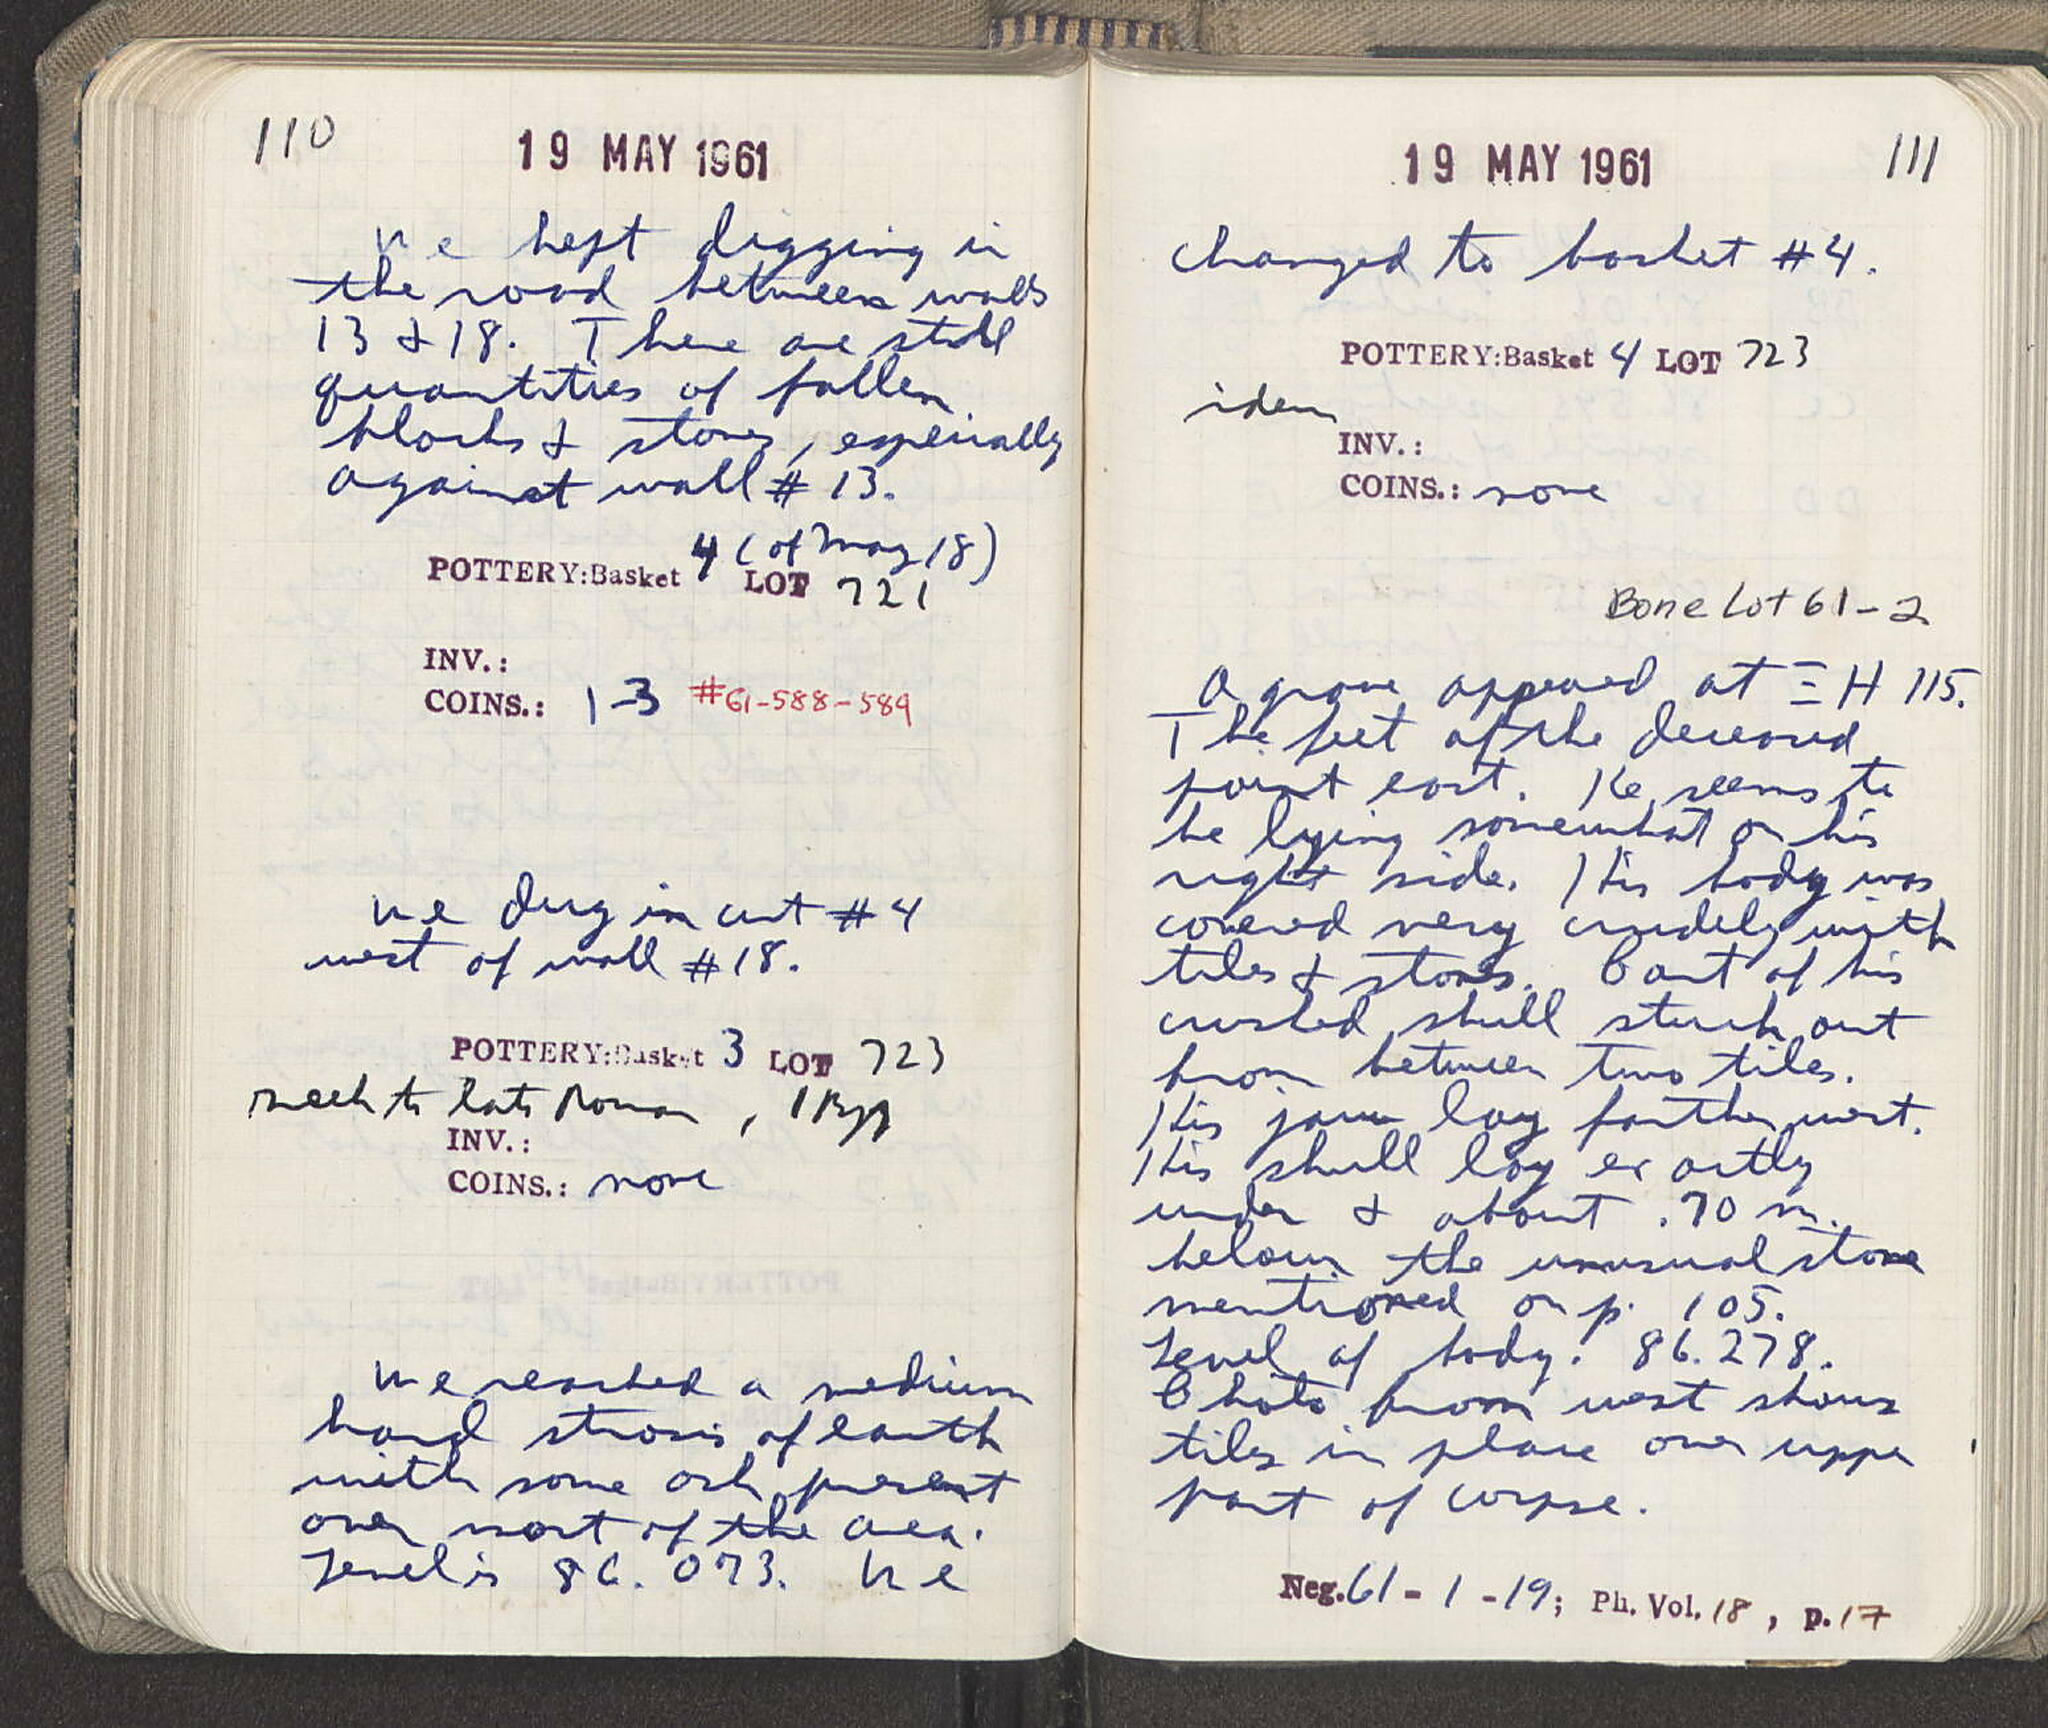 110
19 MAY 1961
We kept digging in
the road between walls
13 & 18. There are still
quantities of fallen
blocks & stones, especially
against wall # 13.
4 (of May 18)
POTTERY:Basket LOT 721
INV.:
COINS.: 1-3 #61-588-589
We dug in cut #4
west of wall #18.
POTTERY:Basket 3 LOT 723
Greek to late Roman, 1 Byz
INV.:
COINS.: none
We reached a medium
hard strosis of earth
with some ash present
over most of the area.
Level is 86.073. We
111
19 MAY 1961
changed to basket #4.
POTTERY:Basket 4 LOT 723
idem
INV.:
COINS.: none
Bone Lot 61-2
A grave appeared at ΞH 115.
The feet of the deceased
point east. He seems to
be lying somewhat on his
right side. His body was
covered very crudely with
tiles & stones. Part of his
crushed skull stuck out
from between two tiles.
His jaw lay farther west.
His skull lay exactly
under & about .70 m.
below the unusual stone
mentioned on p. 105.
Level of body: 86.278.
Photo from west shows
tiles in place over upper
part of corpse.
Neg. 61-1-19; Ph. Vol. 18, p. 17